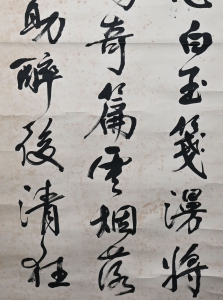 白玉箋漫將
奇篇雲烟落
助醉後清狂